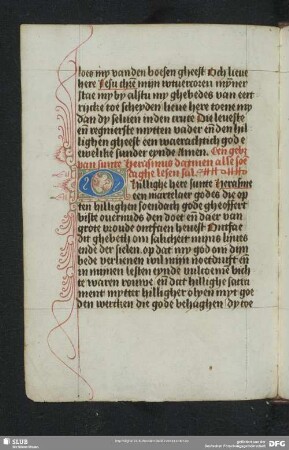 loes my vanden boesen gheest Och lieue
here Jesu christe mijn
stae my by alstu my ghebedes van eert
rijcke toe scheyden lieue here toene my
dan dy seluen inden cruce Die leueste
en̄ regnierste mytten vader en̄ den hil
lighen gheest een waerachtich god e
ewelike sunder eynde Amen. Een gebet
van sunte herasmus datmen alle soe
daghe lesen sal
O hillighe here sunte herasme
een martelaer godes die op
ten hillighen soendach gode gheoffert
biste ouermids den doet en̄ daer van
grote vroude ontfaen heuest Ontfae
dit ghebeth om salicheit mijns liues
ende der sielen op dat my god om dijn
bede verlienen wil mijn noetdurft en̄
in minen lesten eynde volcomen biech
te waren rouwe en̄ dat hillighe sacra
ment mytter hilligher olyen myt goe
den wercken die gode behaghen Dy toe
SLUB
DFG